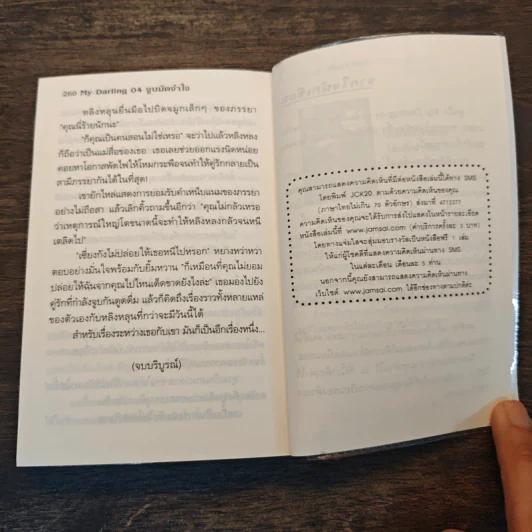 260 My Darling 04 จูบมัดจำใจ
หลิงหลุนยื่นมือไปบิดจมูกเล็กๆ ของภรรยา
"คุณนี่ร้ายนักนะ"
"ก็คุณเป็นคนสอนไม่ใช่เหรอ" จะว่าไปแล้วหลิงหลง
ก็ถือว่าเป็นแม่สื่อของเธอ เธอเลยช่วยออกแรงนิดหน่อย
คอยหาโอกาสพัดไฟให้โหมกระพือจนทำให้คู่รักกลายเป็น
สามีภรรยากันได้ในที่สุด!
เขายักไหล่แสดงการยอมรับคำเหน็บแนมของภรรยา
อย่างไม่ถือสา แล้วเลิกคิ้วถามขึ้นอีกว่า "คุณไม่กลัวเหรอ
ว่าเหตุการณ์ใหญ่โตขนาดนี้จะทำให้หลิงหลงกลัวจนหนี
เตลิดไป"
"เซี่ยงกังไม่ปล่อยให้เธอหนีไปหรอก" หยางหว่าหว่า
ตอบอย่างมั่นใจพร้อมกับยิ้มหวาน "ก็เหมือนที่คุณไม่ยอม
ปล่อยให้ฉันจากคุณไปไหนเด็ดขาดยังไงล่ะ" เธอมองไปยัง
คู่รักที่กำลังจูบกันดูดดื่ม แล้วก็คิดถึงเรื่องราวทั้งหลายแหล่
ของตัวเองกับหลิงหลุนที่กว่าจะมีวันนี้ได้
สำหรับเรื่องระหว่างเธอกับเขา มันก็เป็นอีกเรื่องหนึ่ง...
(จบบริบูรณ์)
คุณสามารถแสดงความคิดเห็นที่มีต่อหนังสือเล่มนี้ได้ทาง SMS
โดยพิมพ์ JCK20 ตามด้วยความคิดเห็นของคุณ
(ภาษาไทยไม่เกิน 70 ตัวอักษร) ส่งมาที่ 4712377
ความคิดเห็นของคุณจะได้รับการส่งไปแสดงในหน้ารายละเอียด
หนังสือเล่มนี้ที่ www.jamsai.com (ค่าบริการครั้งละ 3 บาท)
โดยทางแจ่มใสจะสุ่มมอบรางวัลเป็นหนังสือฟรี 1 เล่ม
ให้แก่ผู้โชคดีที่แสดงความคิดเห็นผ่านทาง SMS
ในแต่ละเดือน เดือนละ 5 ท่าน
นอกจากนี้คุณยังสามารถแสดงความคิดเห็นผ่านทาง
เว็บไซต์ www.jamsai.com ได้อีกช่องทางตามปกติค่ะ